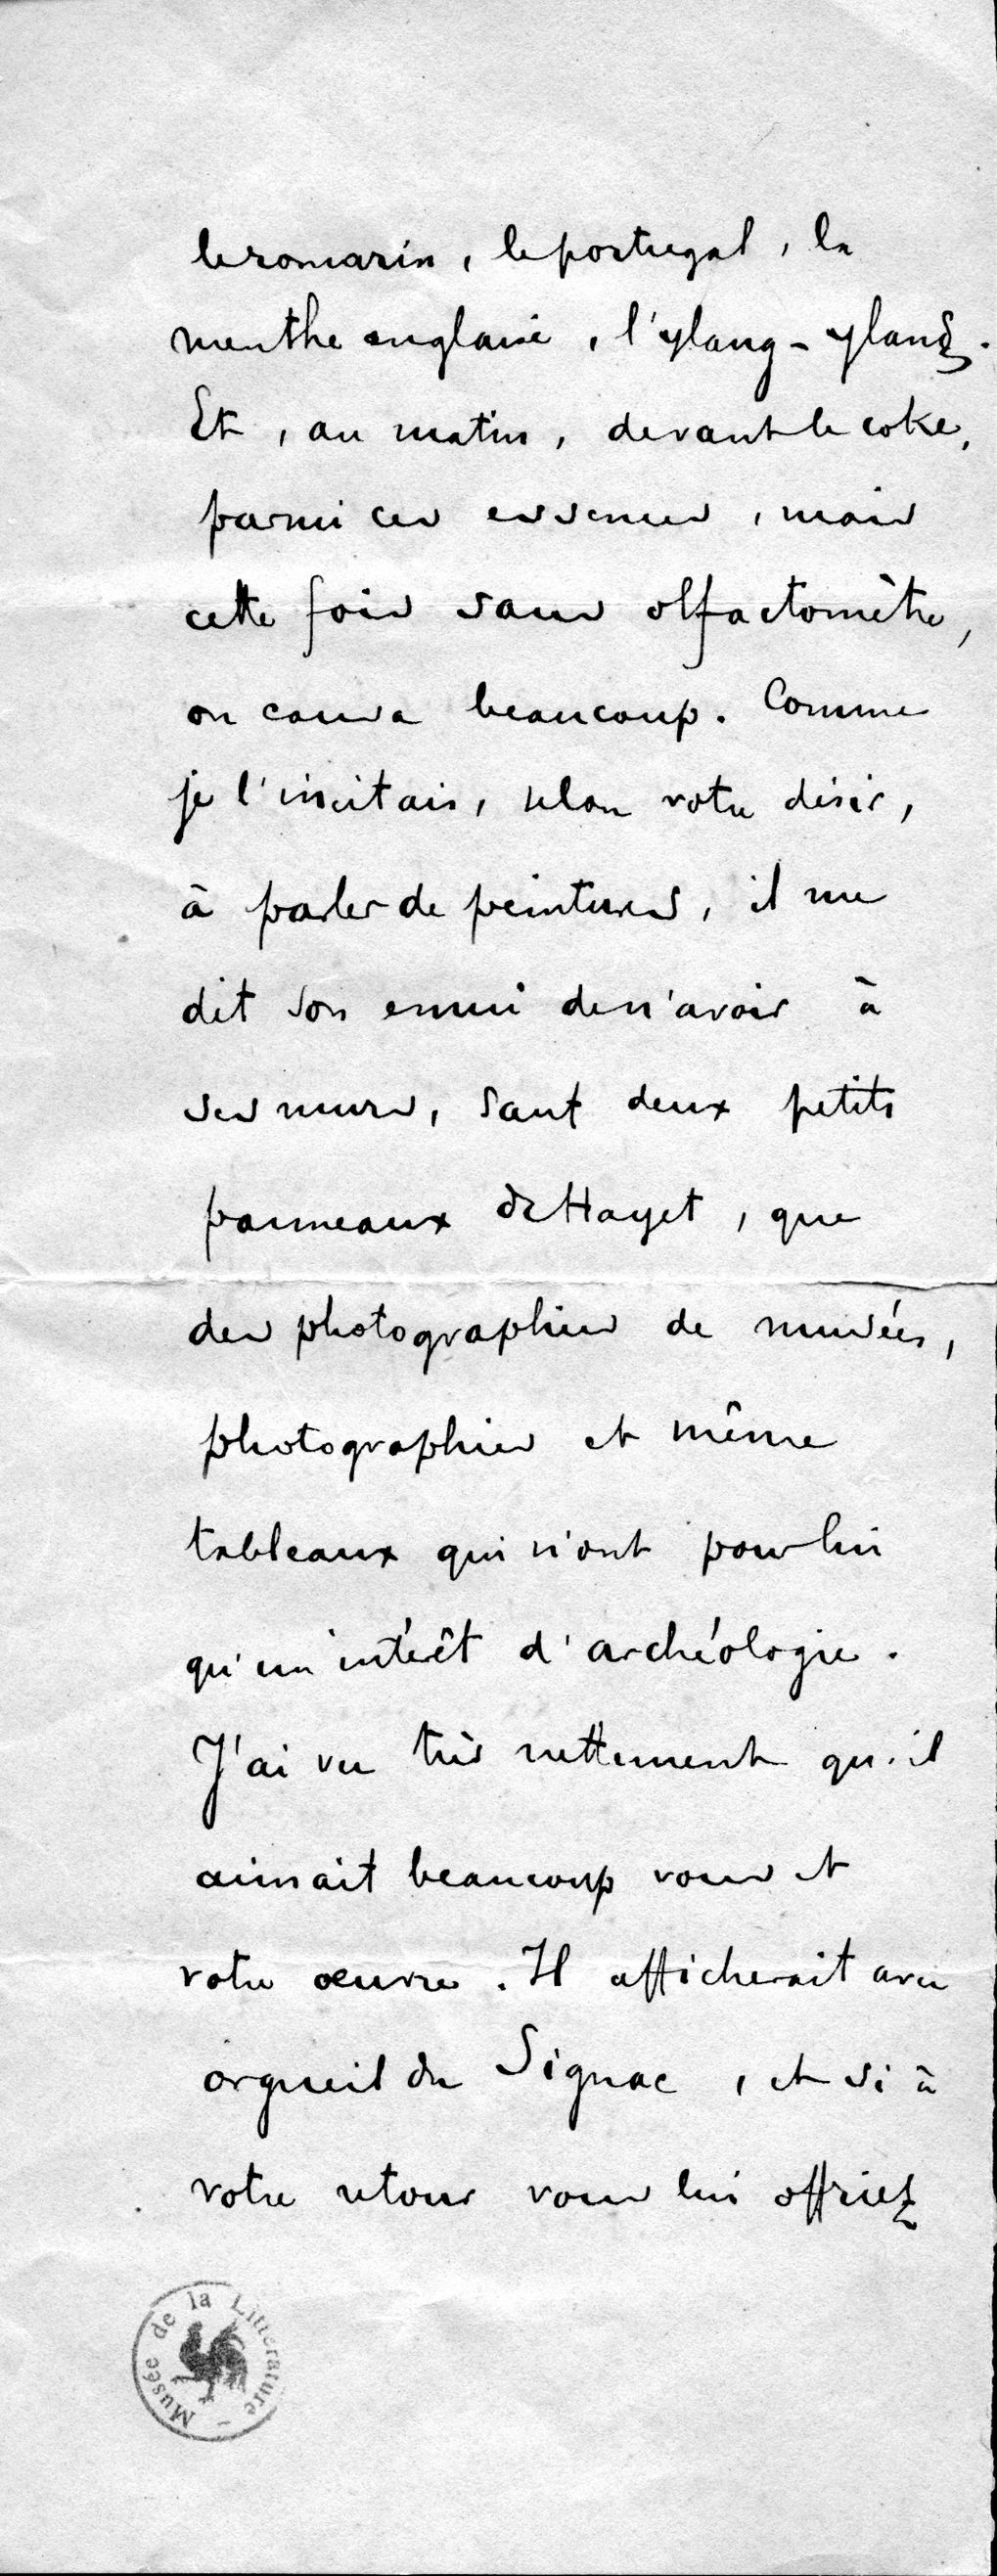 le romarin, le portugal, la
menthe anglaise, l'ylang-ylang.
Et, au matin, devant le coke,
parmi ces essences, mais
cette fois sans olfactomètre,
on causa beaucoup. Comme
je l'incitais, selon votre désir,
à parler de peintures, il me
dit son ennui de n'avoir à
ses murs, sauf deux petits
panneaux de Hayet, que
des photographies de musées,
photographies et même
tableaux qui n'ont pour lui
qu'un intérêt d'archéologie.
J'ai vu très nettement qu'il
aimait beaucoup vous et
votre œuvre. Il afficherait avec
orgueil du Signac, et si à
votre retour vous lui offriez
Musée de la Littérature -